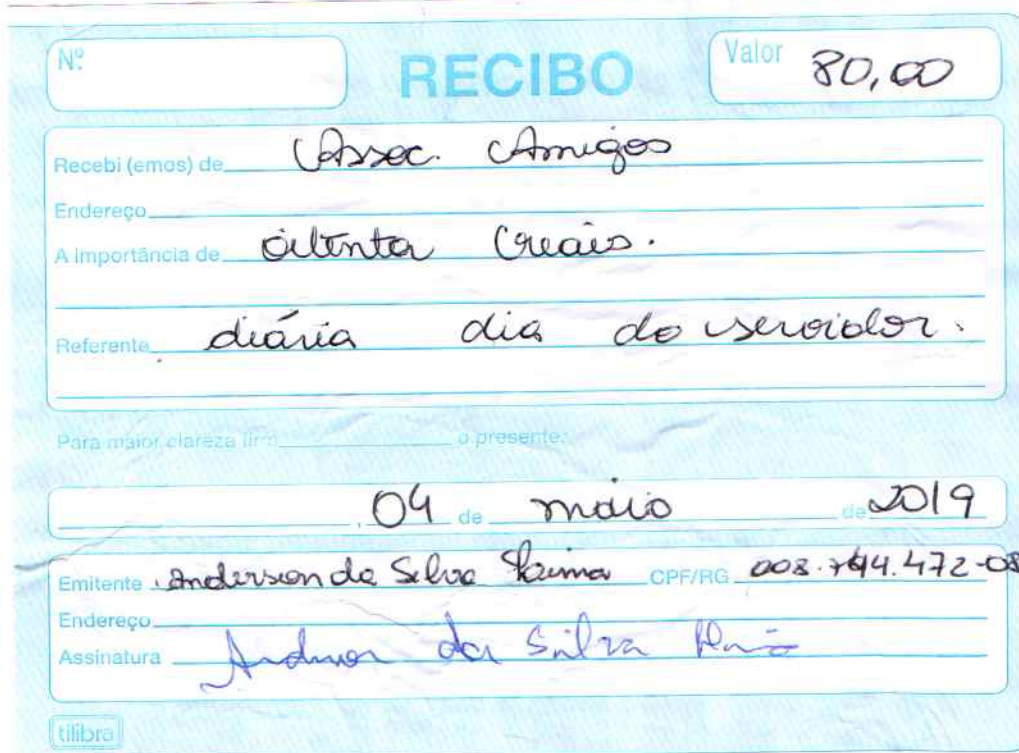 Nº
RECIBO
Valor 80,00
Recebi (emos) de Assoc. Amigos
Endereço
A importância de oitenta reais.
Referente diária dia do servidor.
Para maior clareza firm o presente.
04 de maio de 2019
Emitente Anderson da Silva CPF/RG
Endereço
Assinatura da Silva
tilibra